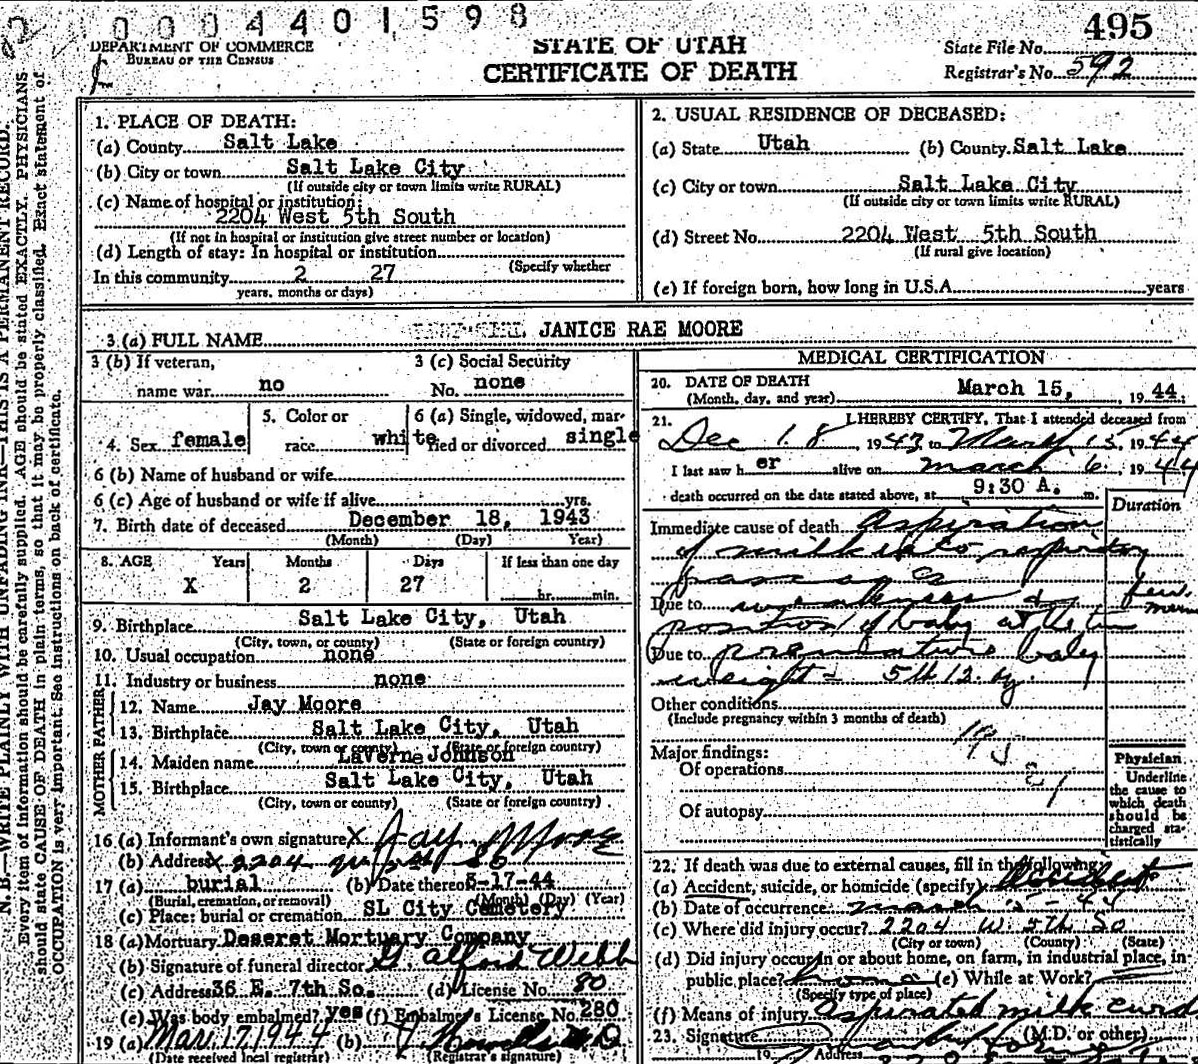 0004401598
495
DEPARTMENT OF COMMERCE
BUREAU OF THE CENSUS
STATE OF UTAH
CERTIFICATE OF DEATH
State File No.
Registrar's No. 592
N. B.—WRITE PLAINLY WITH UNFADING INK—THIS IS A PERMANENT RECORD.
Every item of information should be carefully supplied. AGE should be stated EXACTLY. PHYSICIANS
should state CAUSE OF DEATH in plain terms, so that it may be properly classified. Exact statement of
OCCUPATION is very important. See instructions on back of certificate.
1. PLACE OF DEATH:
(a) County Salt Lake
(b) City or town Salt Lake City
(If outside city or town limits write RURAL)
(c) Name of hospital or institution:
2204 West 5th South
(If not in hospital or institution give street number or location)
(d) Length of stay: In hospital or institution
(Specify whether
In this community 2 27
years, months or days)
2. USUAL RESIDENCE OF DECEASED:
(a) State Utah (b) County Salt Lake
(c) City or town Salt Lake City
(If outside city or town limits write RURAL)
(d) Street No. 2204 West 5th South
(If rural give location)
(e) If foreign born, how long in U.S.A. years
3 (a) FULL NAME JANICE RAE MOORE
3 (b) If veteran, 3 (c) Social Security
name war no No. none
4. Sex female 5. Color or race white 6 (a) Single, widowed, married or divorced single
6 (b) Name of husband or wife
6 (c) Age of husband or wife if alive yrs.
7. Birth date of deceased December 18, 1943
(Month) (Day) Year)
8. AGE Years Months Days If less than one day
X 2 27 hr. min.
9. Birthplace Salt Lake City, Utah
(City, town, or county) (State or foreign country)
10. Usual occupation none
11. Industry or business none
FATHER
12. Name Jay Moore
13. Birthplace Salt Lake City, Utah
(City, town or county) (State or foreign country)
MOTHER
14. Maiden name LaVerne Johnson
15. Birthplace Salt Lake City, Utah
(City, town or county) (State or foreign country)
16 (a) Informant's own signature X Jay Moore
(b) Address X 2204 So
17 (a) burial (b) Date thereof 3-17-44
(Burial, cremation, or removal) (Month) (Day) (Year)
(c) Place: burial or cremation SL City Cemetery
18 (a) Mortuary Deseret Mortuary Company
(b) Signature of funeral director G Alford Webb
(c) Address 36 E. 7th So. (d) License No. 80
(e) Was body embalmed? yes (f) Embalmer's License No. 280
19 (a) Mar. 17, 1944 (b)
(Date received local registrar) (Registrar's signature)
MEDICAL CERTIFICATION
20. DATE OF DEATH March 15, 1944
(Month, day, and year)
21. I HEREBY CERTIFY, That I attended deceased from
Dec 18 1943 to March 15, 1944
I last saw her alive on March 6, 1944
death occurred on the date stated above, at 9:30 A. m.
Duration
Immediate cause of death Aspiration
of milk into respiratory
passage
Due to weakness &
few
position of baby at the time
Due to premature baby
weight = 5 lb 12
Other conditions
(Include pregnancy within 3 months of death)
Major findings:
Of operations
Of autopsy
Physician
Underline
the cause to
which death
should be
charged sta-
tistically
22. If death was due to external causes, fill in the following:
(a) Accident, suicide, or homicide (specify) Accident
(b) Date of occurrence March 15-44
(c) Where did injury occur? 2204 W. 5th So
(City or town) (County) (State)
(d) Did injury occur in or about home, on farm, in industrial place, in
public place? home (e) While at Work?
(Specify type of place)
(f) Means of injury Aspirated milk curd
23. Signature (M.D. or other)
Address